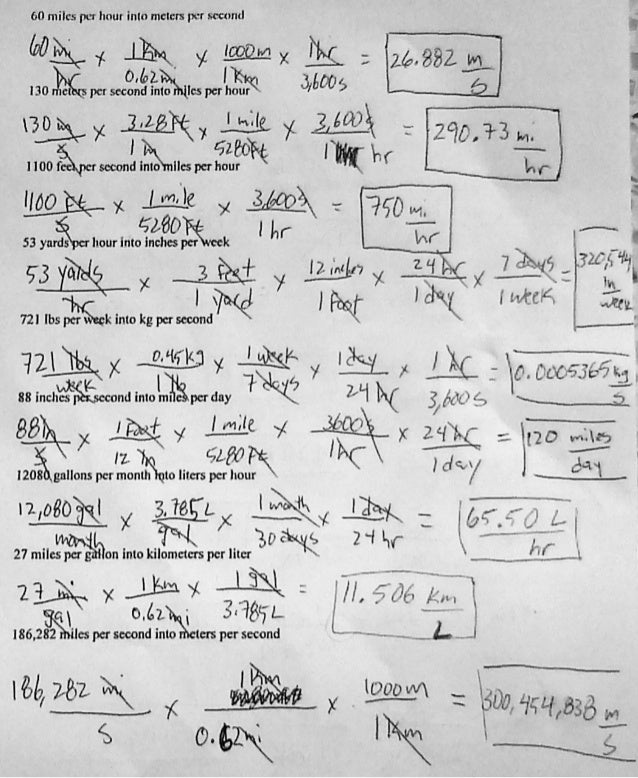 60 miles per hour into meters per second
60 mi/hr × 1 Km/0.62 mi × 1000 m/1 Km × 1 hr/3,600 s = 26.882 m/s
130 meters per second into miles per hour
130 m/s × 3.28 Ft/1 m × 1 mile/5280 Ft × 3,600 s/1 hr = 290.73 mi./hr
1100 feet per second into miles per hour
1100 Ft/s × 1 mile/5280 Ft × 3,600 s/1 hr = 750 mi./hr
53 yards per hour into inches per week
53 yards/hr × 3 feet/1 yard × 12 inches/1 Foot × 24 hr/1 day × 7 days/1 week = 320,544 in/week
721 lbs per week into kg per second
721 lbs/week × 0.45 kg/1 lb × 1 week/7 days × 1 day/24 hr × 1 hr/3,600 s = 0.0005365 kg/s
88 inches per second into miles per day
88 in/s × 1 Foot/12 in × 1 mile/5280 Ft × 3600 s/1 hr × 24 hr/1 day = 120 miles/day
12080 gallons per month into liters per hour
12,080 gal/month × 3.785 L/gal × 1 month/30 days × 1 day/24 hr = 65.50 L/hr
27 miles per gallon into kilometers per liter
27 mi/gal × 1 Km/0.62 mi × 1 gal/3.785 L = 11.506 Km/L
186,282 miles per second into meters per second
186,282 mi/s × 1 Km/0.62 mi × 1000 m/1 Km = 300,454,838 m/s